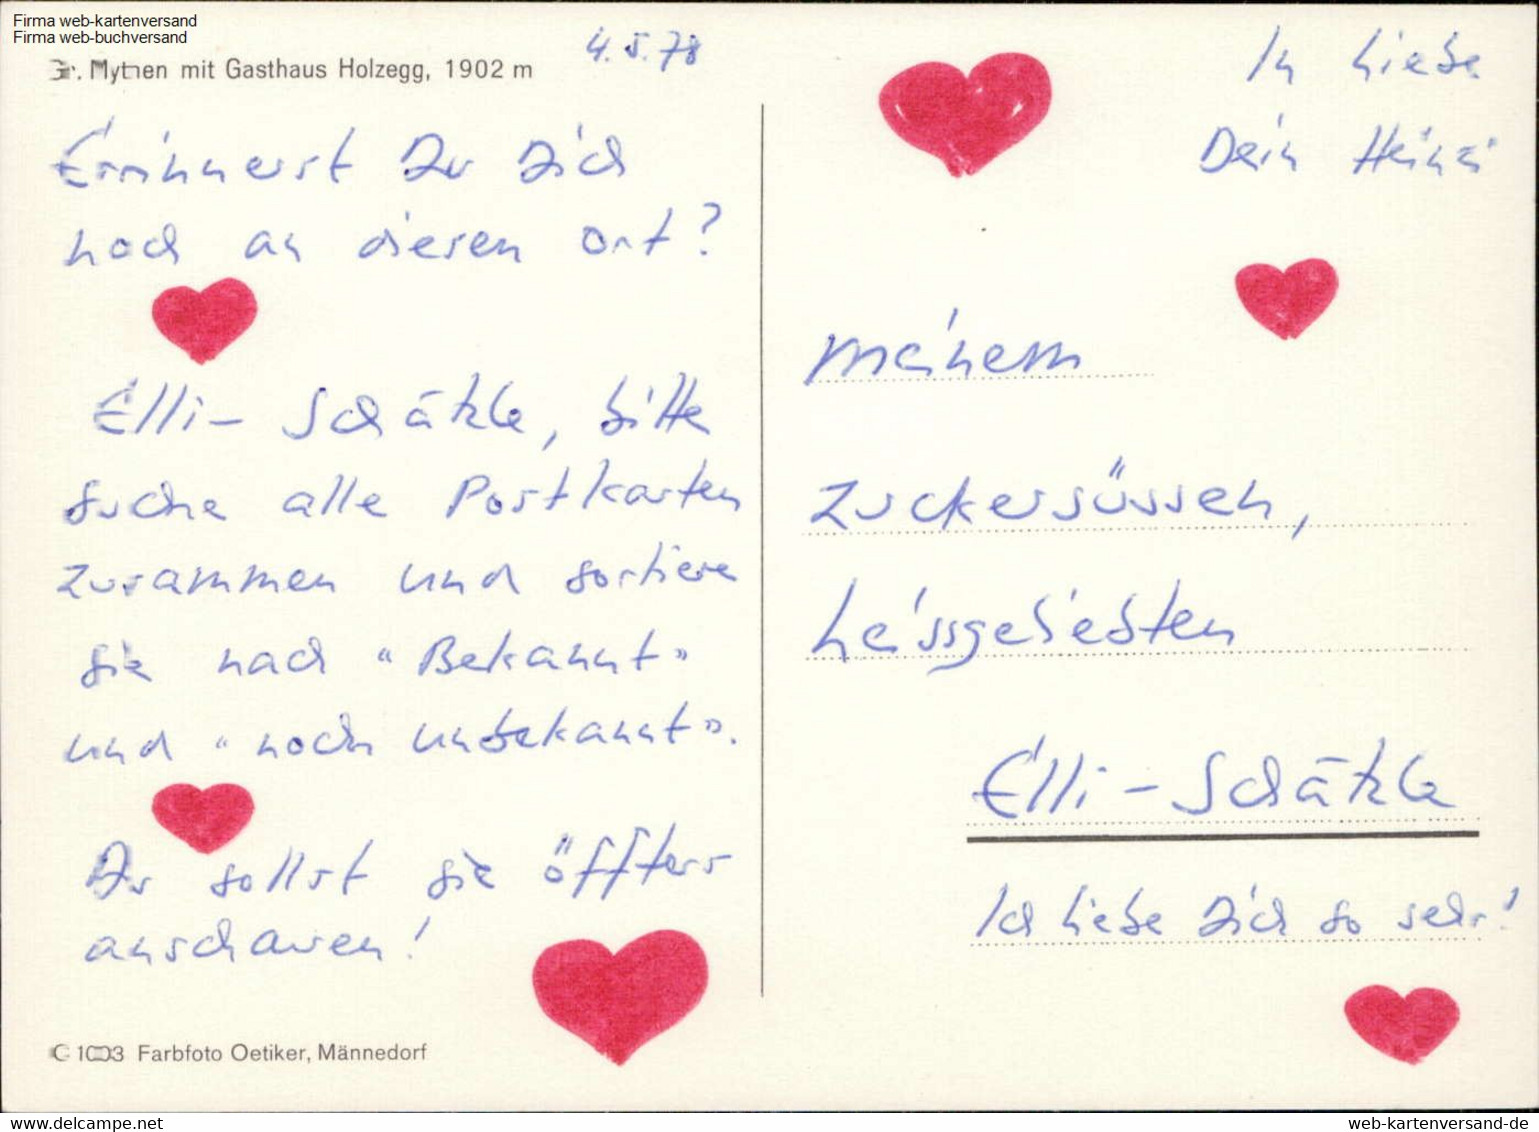 Firma web-kartenversand
Firma web-buchversand
Gr. Mythen mit Gasthaus Holzegg, 1902 m
4.5.78
Erinnerst Du Dich
noch an diesen Ort?
Elli - Schätzle, bitte
suche alle Postkarten
zusammen und sortiere
sie nach "Bekannt"
und "noch unbekannt".
Du sollst sie öffters
anschauen!
G 1003 Farbfoto Oetiker, Männedorf
In Liebe
Dein Heinzi
meinem
zuckersüssen,
heissgeliebten
Elli - Schätzle
Ich liebe Dich so sehr!
www.123compare.me
www.web-kartenversand-de